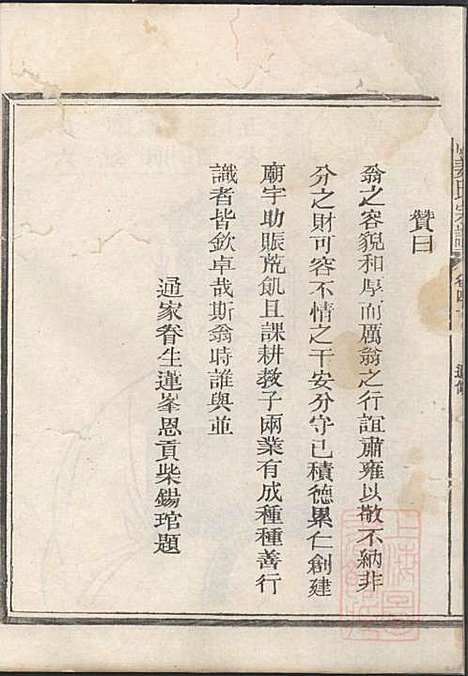 贊曰
翁之容貌和厚而厲翁之行誼肅雍以敬不納非
分之財可容不情之干安分守已積德累仁創建
廟宇助賑荒飢且課耕教子兩業有成種種善行
識者皆欽卓哉斯翁時誰與並
通家眷生蓮峯恩貢柴錫琯題